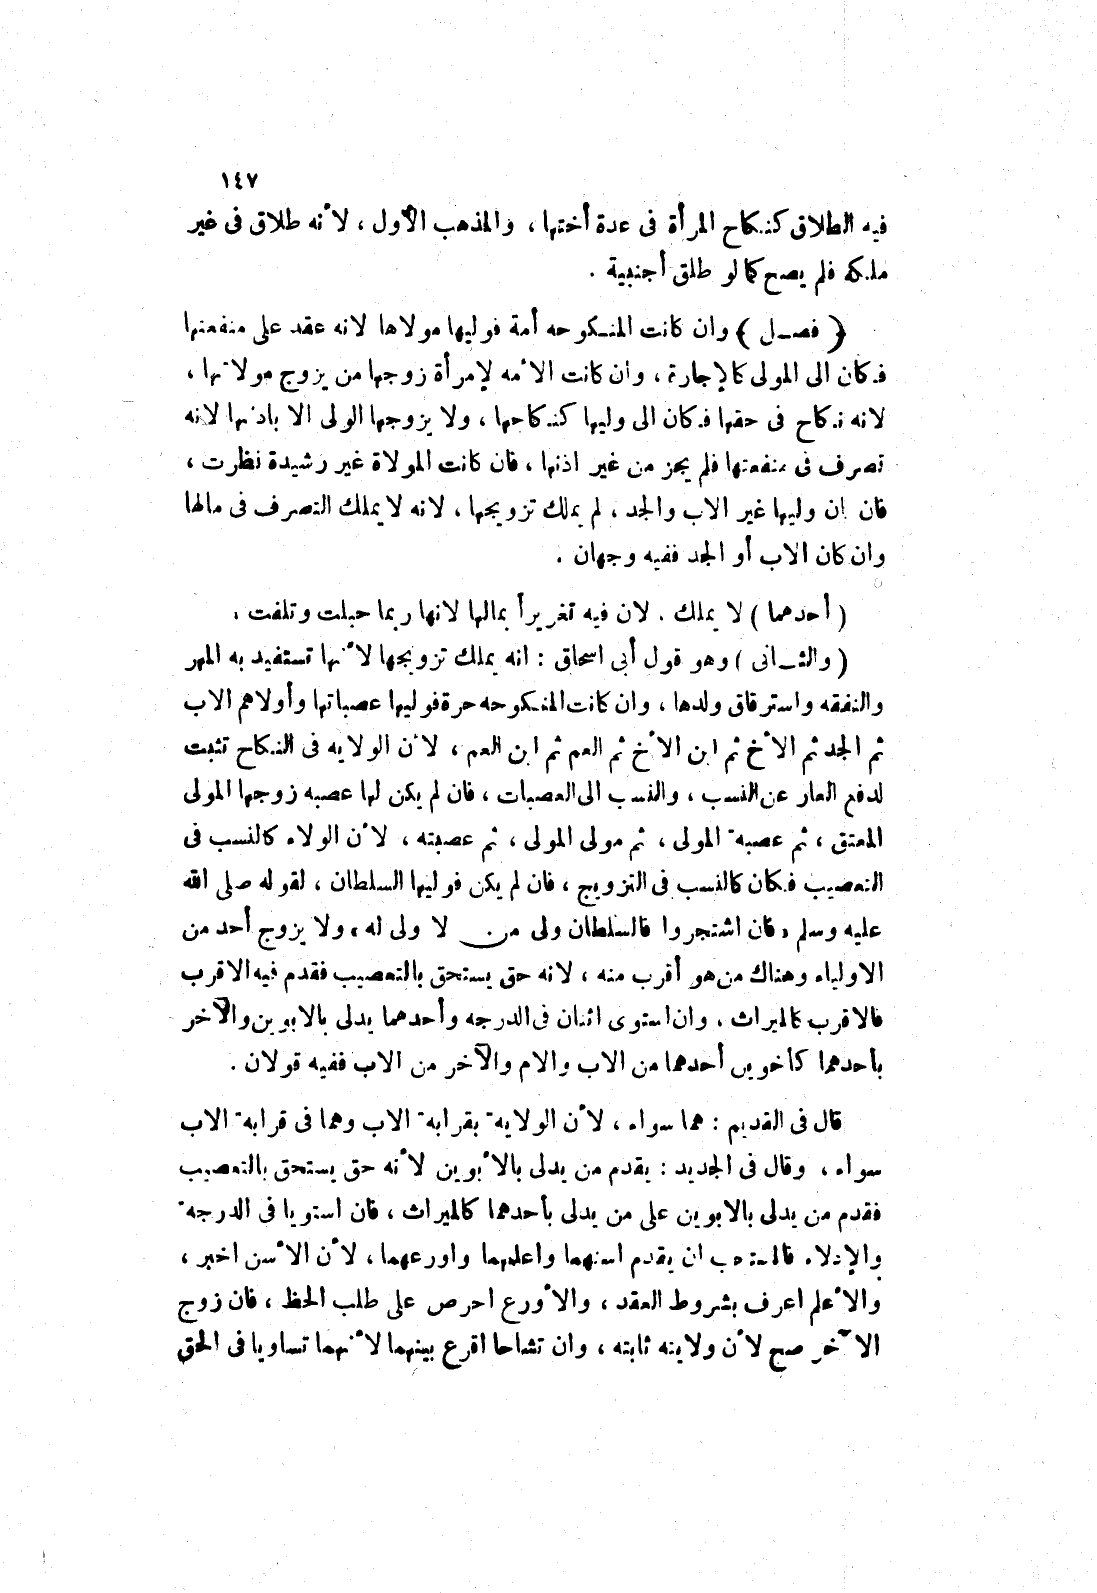 ١٤٧
فيه الطلاق كنكاح المرأة فى عدة أختها ، والمذهب الأول ، لأنه طلاق فى غير
ملكه فلم يصح كما لو طلق أجنبية .
( فصل ) وان كانت المنكوحه أمة فوليها مولاها لانه عقد على منفعتها
فكان الى المولى كالإجارة ، وان كانت الأمه لإمرأة زوجها من يزوج مولاتها ،
لانه نكاح فى حقها فكان الى وليها كنكاحها ، ولا يزوجها الولى الا باذنها لانه
تصرف فى منفعتها فلم يجز من غير اذنها ، فان كانت المولاة غير رشيدة نظرت ،
فان ان وليها غير الاب والجد ، لم يملك تزويجها ، لانه لا يملك التصرف فى مالها
وان كان الاب أو الجد ففيه وجهان .
( أحدهما ) لا يملك . لان فيه تغريراً بمالها لانها ربما حبلت وتلفت .
( والثانى ) وهو قول أبى اسحاق : انه يملك تزويجها لأنها تستفيد به المهر
والنفقه واسترقاق ولدها ، وان كانت المنكوحه حرة فوليها عصباتها وأولاهم الاب
ثم الجد ثم الأخ ثم ابن الأخ ثم العم ثم ابن العم ، لأن الولايه فى النكاح تثبت
لدفع العار عن النسب ، والنسب الى العصبات ، فان لم يكن لها عصبه زوجها المولى
المعتق ، ثم عصبة المولى ، ثم مولى المولى ، ثم عصبته ، لأن الولاء كالنسب فى
التعصيب فكان كالنسب فى التزويج ، فان لم يكن فوليها السلطان ، لقوله صلى الله
عليه وسلم « فان اشتجروا فالسلطان ولى من لا ولى له » ولا يزوج أحد من
الاولياء وهناك من هو أقرب منه ، لانه حق يستحق بالتعصيب فقدم فيه الاقرب
فالاقرب كالميراث ، وان استوى اثنان فى الدرجه وأحدهما يدلى بالابوين والآخر
بأحدهما كأخوين أحدهما من الاب والام والآخر من الاب ففيه قولان .
قال فى القديم : هما سواء ، لأن الولاية بقرابة الاب وهما فى قرابة الاب
سواء ، وقال فى الجديد : يقدم من يدلى بالأبوين لأنه حق يستحق بالتعصيب
فقدم من يدلى بالابوين على من يدلى بأحدهما كالميراث ، فان استويا فى الدرجة
والإدلاء فالمستحب ان يقدم اسنهما واعلمهما واورعهما ، لأن الأسن اخبر ،
والأعلم اعرف بشروط العقد ، والأورع احرص على طلب الحظ ، فان زوج
الآخر صح لأن ولايته ثابته ، وان تشاحا اقرع بينهما لأنهما تساويا فى الحق